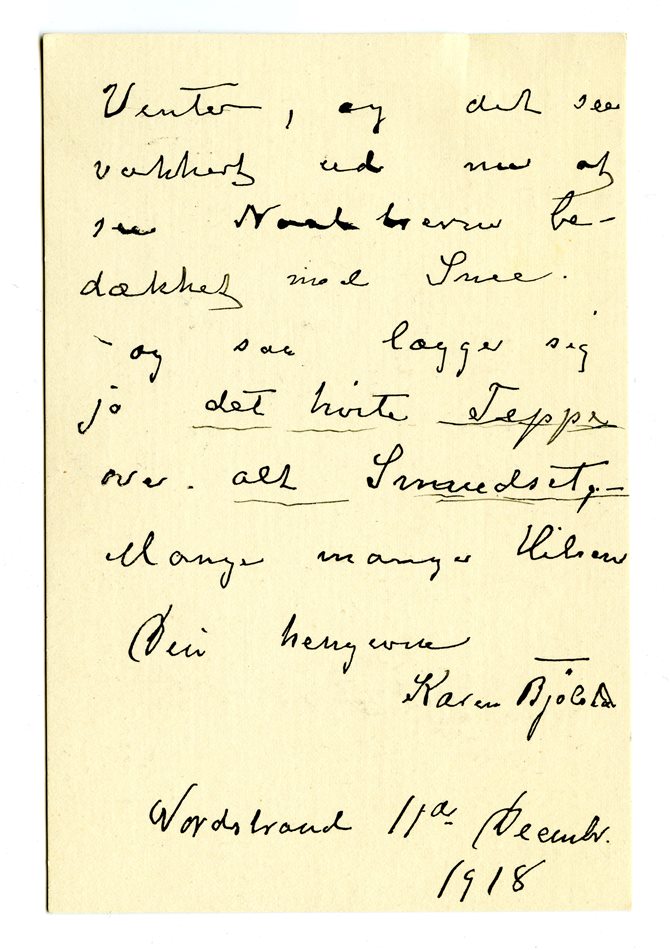 Venter, og det see
vakkert ud nu at
see Naaletrerne be-
dækket med Snee.
- og saa lægger sig
jo det hvite Tæppe
over. alt Smudset,-
Mange mange Hilsen
Din hengivne
Karen Bjölstad
Nordstrand 11te Decembr.
1918